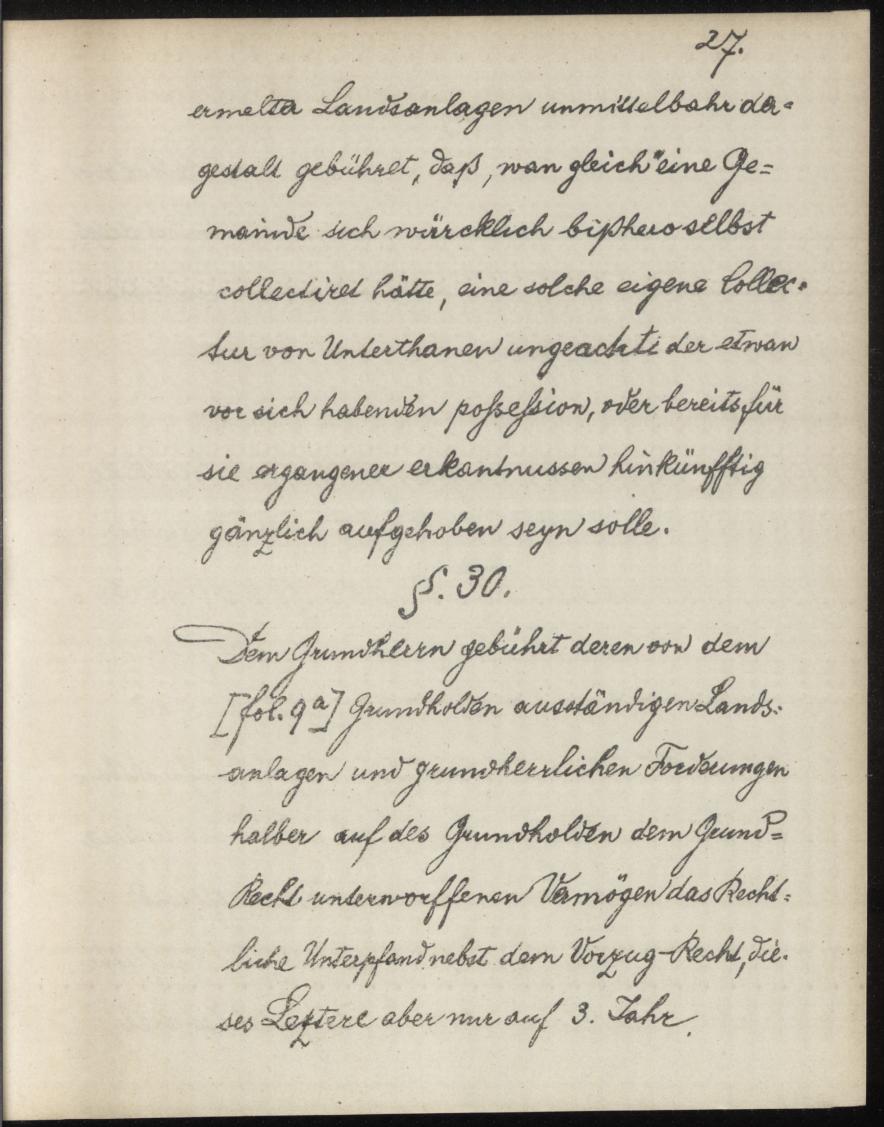 27.
ermelta Landsanlagen unmittelbahr der=
gestalt gebühret, daß, wan gleich eine Ge=
mainde sich würcklich bißhero selbst
collectiret hätte, eine solche eigene Collec=
tur von Unterthanen ungeachti der etwan
vor sich habenden poßeßion, oder bereits für
sie ergangener erkantnussen hinkünfftig
gänzlich aufgehoben seyn solle.
§. 30.
Dem Grundherrn gebührt deren von dem
[fol. 9a] Grundholden ausständigen Lands=
anlagen und grundherrlichen Forderungen
halber auf des Grundholden dem Grund=
Recht unterworffenen Vermögen das Recht=
liche Unterpfand nebst dem Vorzug-Recht, die=
ses Leztere aber nur auf 3. Jahr.